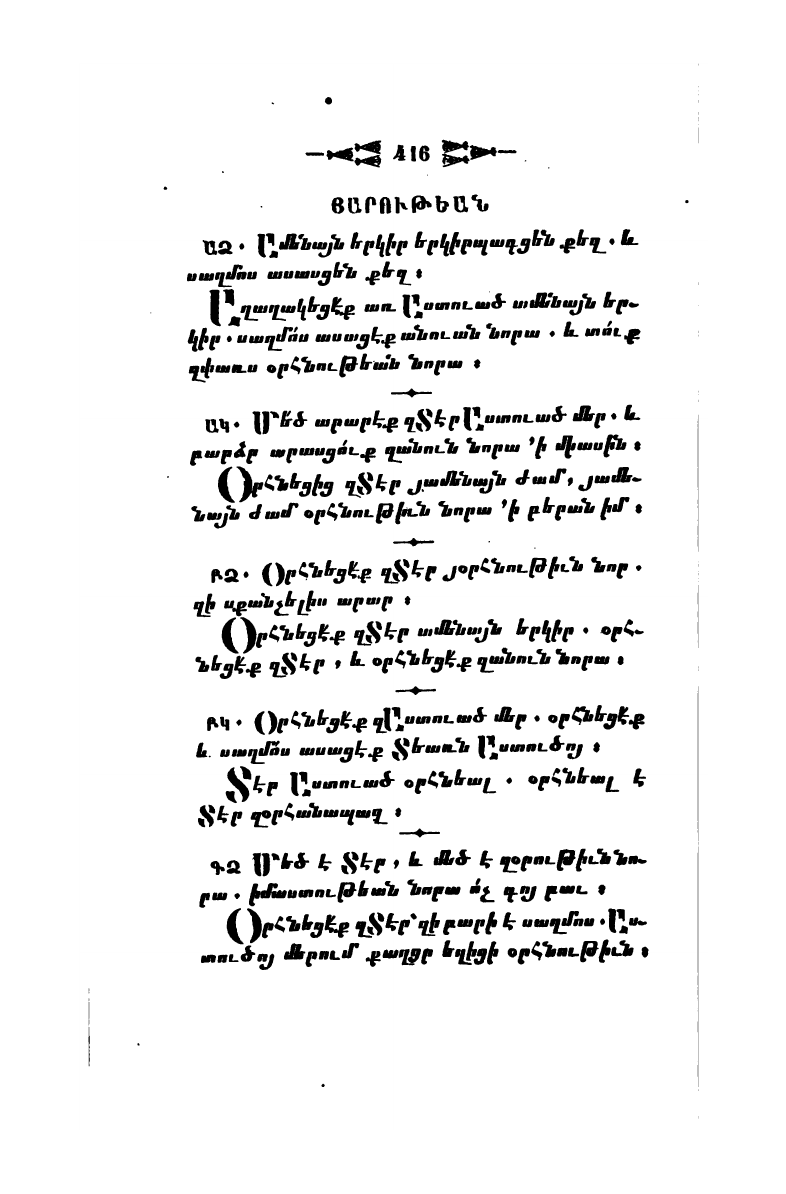 416
ՅԱՐՈՒԹԵԱՆ
ԱՁ. Ամենայն երկիր երկիրպագցեն քեզ. և
սաղմոս ասասցեն քեզ ։
Աղաղակեցէք առ Աստուած ամենայն եր-
կիր. սաղմո՛ս ասացէք անուան նորա . և տո՛ւք
զփառս օրհնութեա՛ն նորա ։
ԱԿ. Մե՛ծ արարէք զՏէր Աստուած մեր. և
բարձր արասցո՛ւք զանուն նորա ՚ի միասին ։
Օրհնեցից զՏէր յամենայն ժամ, յամե-
նայն ժամ օրհնութիւն նորա ՚ի բերան իմ ։
ԲՁ. Օրհնեցէ՛ք զՏէր յօրհնութիւն նոր .
զի սքանչելիս արար ։
Օրհնեցէ՛ք զՏէր ամենայն երկիր . օրհ-
նեցէ՛ք զՏէր , և օրհնեցէ՛ք զանուն նորա ։
ԲԿ. Օրհնեցէ՛ք զԱստուած մեր . օրհնեցէ՛ք
և սաղմո՛ս ասացէք Տեառն Աստուծոյ ։
Տէր Աստուած օրհնեալ . օրհնեալ է
Տէր զօրհանապազ ։
ԳՁ Մեծ է Տէր , և մեծ է զօրութիւն նո-
րա . իմաստութեան նորա ո՛չ գոյ բաւ ։
Օրհնեցէք զՏէր՝ զի բարի է սաղմոս . Աս-
տուծոյ մերում քաղցր եղիցի օրհնութիւն ։